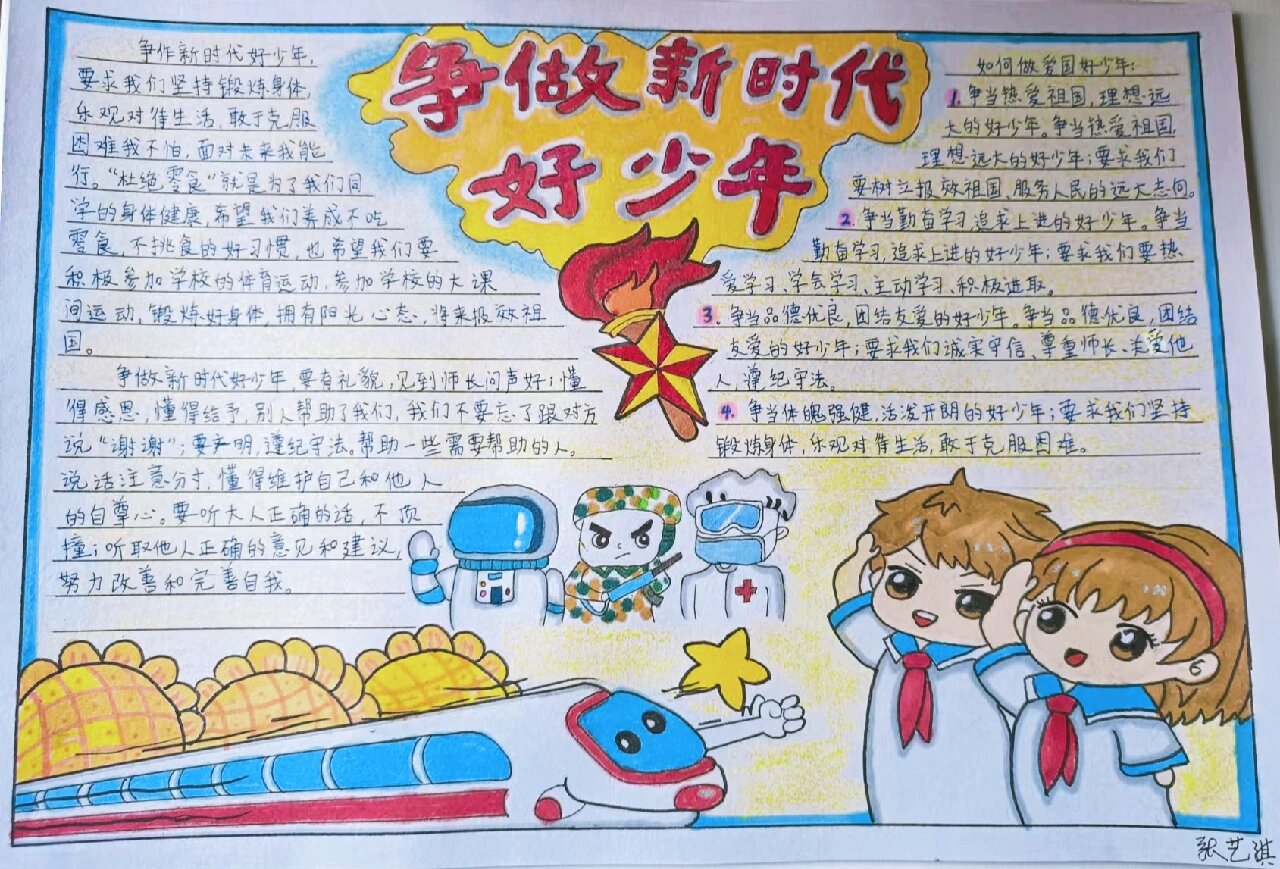 争做新时代
好少年
争作新时代好少年,
要求我们坚持锻炼身体,
乐观对待生活,敢于克服
困难我不怕,面对未来我能
行。“杜绝零食”就是为了我们同
学的身体健康,希望我们养成不吃
零食,不挑食的好习惯,也希望我们要
积极参加学校的体育运动,参加学校的大课
间运动,锻炼好身体,拥有阳光心态,将来报效祖
国。
争做新时代好少年,要有礼貌,见到师长问声好;懂
得感恩,懂得给予,别人帮助了我们,我们不要忘了跟对方
说“谢谢”;要文明,遵纪守法。帮助一些需要帮助的人。
说话注意分寸,懂得维护自己和他人
的自尊心。要听大人正确的话,不顶
撞;听取他人正确的意见和建议,
努力改善和完善自我。
如何做爱国好少年:
1.争当热爱祖国,理想远
大的好少年。争当热爱祖国,
理想远大的好少年;要求我们
要树立报效祖国、服务人民的远大志向。
2.争当勤奋学习,追求上进的好少年。争当
勤奋学习,追求上进的好少年;要求我们要热
爱学习、学会学习、主动学习、积极进取。
3.争当品德优良,团结友爱的好少年。争当品德优良,团结
友爱的好少年;要求我们诚实守信、尊重师长、关爱他
人,遵纪守法。
4.争当体魄强健,活泼开朗的好少年;要求我们坚持
锻炼身体,乐观对待生活,敢于克服困难。
张艺淇